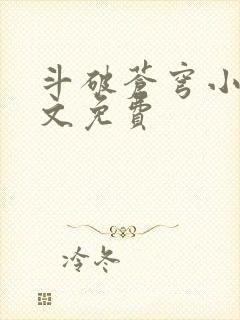 斗破苍穹小
文免费
冷冬